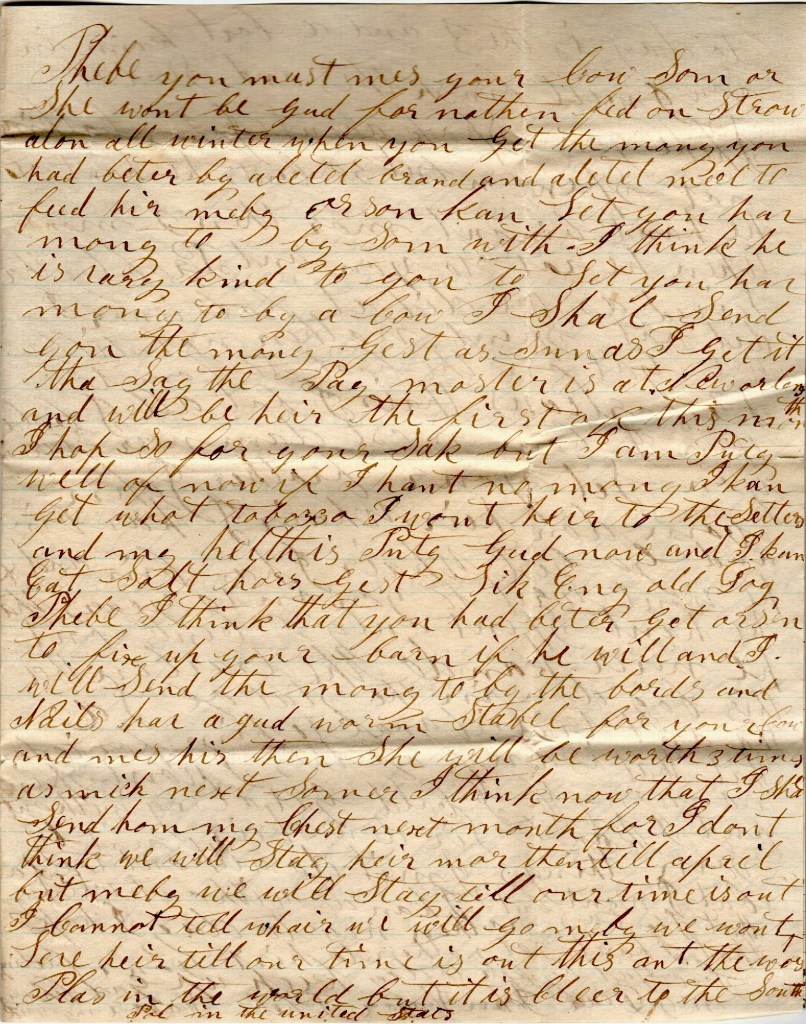 Phebe you must mes your Cow Som or
She wont be gud for nathen fed on Strow
alon all winter when you Get the mony you
had beter by a letel brand and a letel meel to
feed hir meby orson kan Let you hav
mony to by Som with I think he
is vary kind to you to Let you hav
mony to by a Cow I Shal Send
you the mony Gest as Sun as I get it
tha Say the Pay master is at New orleans
and will be heir the first of this month
I hop So for your Sak but I am Prity
well of now if I hant no mony I kan
Get what tobacco I wont heir to the Setlers
and my helth is Prity Gud now and I kan
Eat Salt hors Gest Lik Eny old Dog
Phebe I think that you had beter Get orson
to fix up your barn if he will and I
will Send the mony to by the bords and
Nails hav a gud worm Stabel for your Cow
and mes hir then She will be worth 3 times
as mich next Somer I think now that I Shal
Send hom my Chest next month for I dont
think we will Stay heir mor then till april
but meby we will Stay till our time is out
I Cannot tell whair we will go meby we wont
Leve heir till our time is out this ant the wors
Plas in the world but it is Cleer to the South
Pol in the united Stats